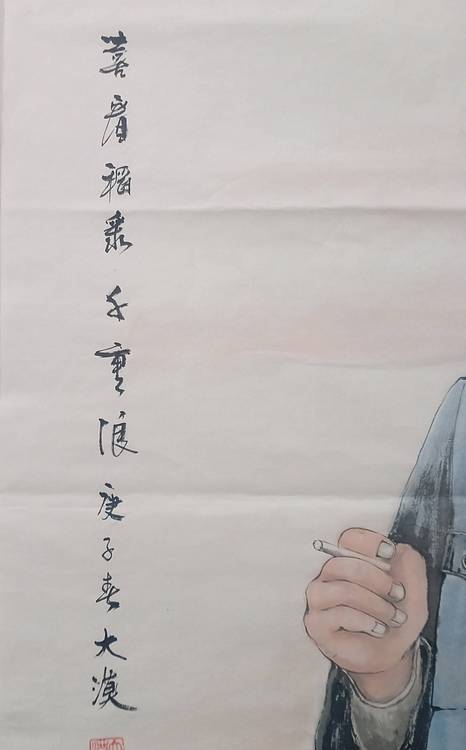 喜看稻菽千重浪 庚子春大漠